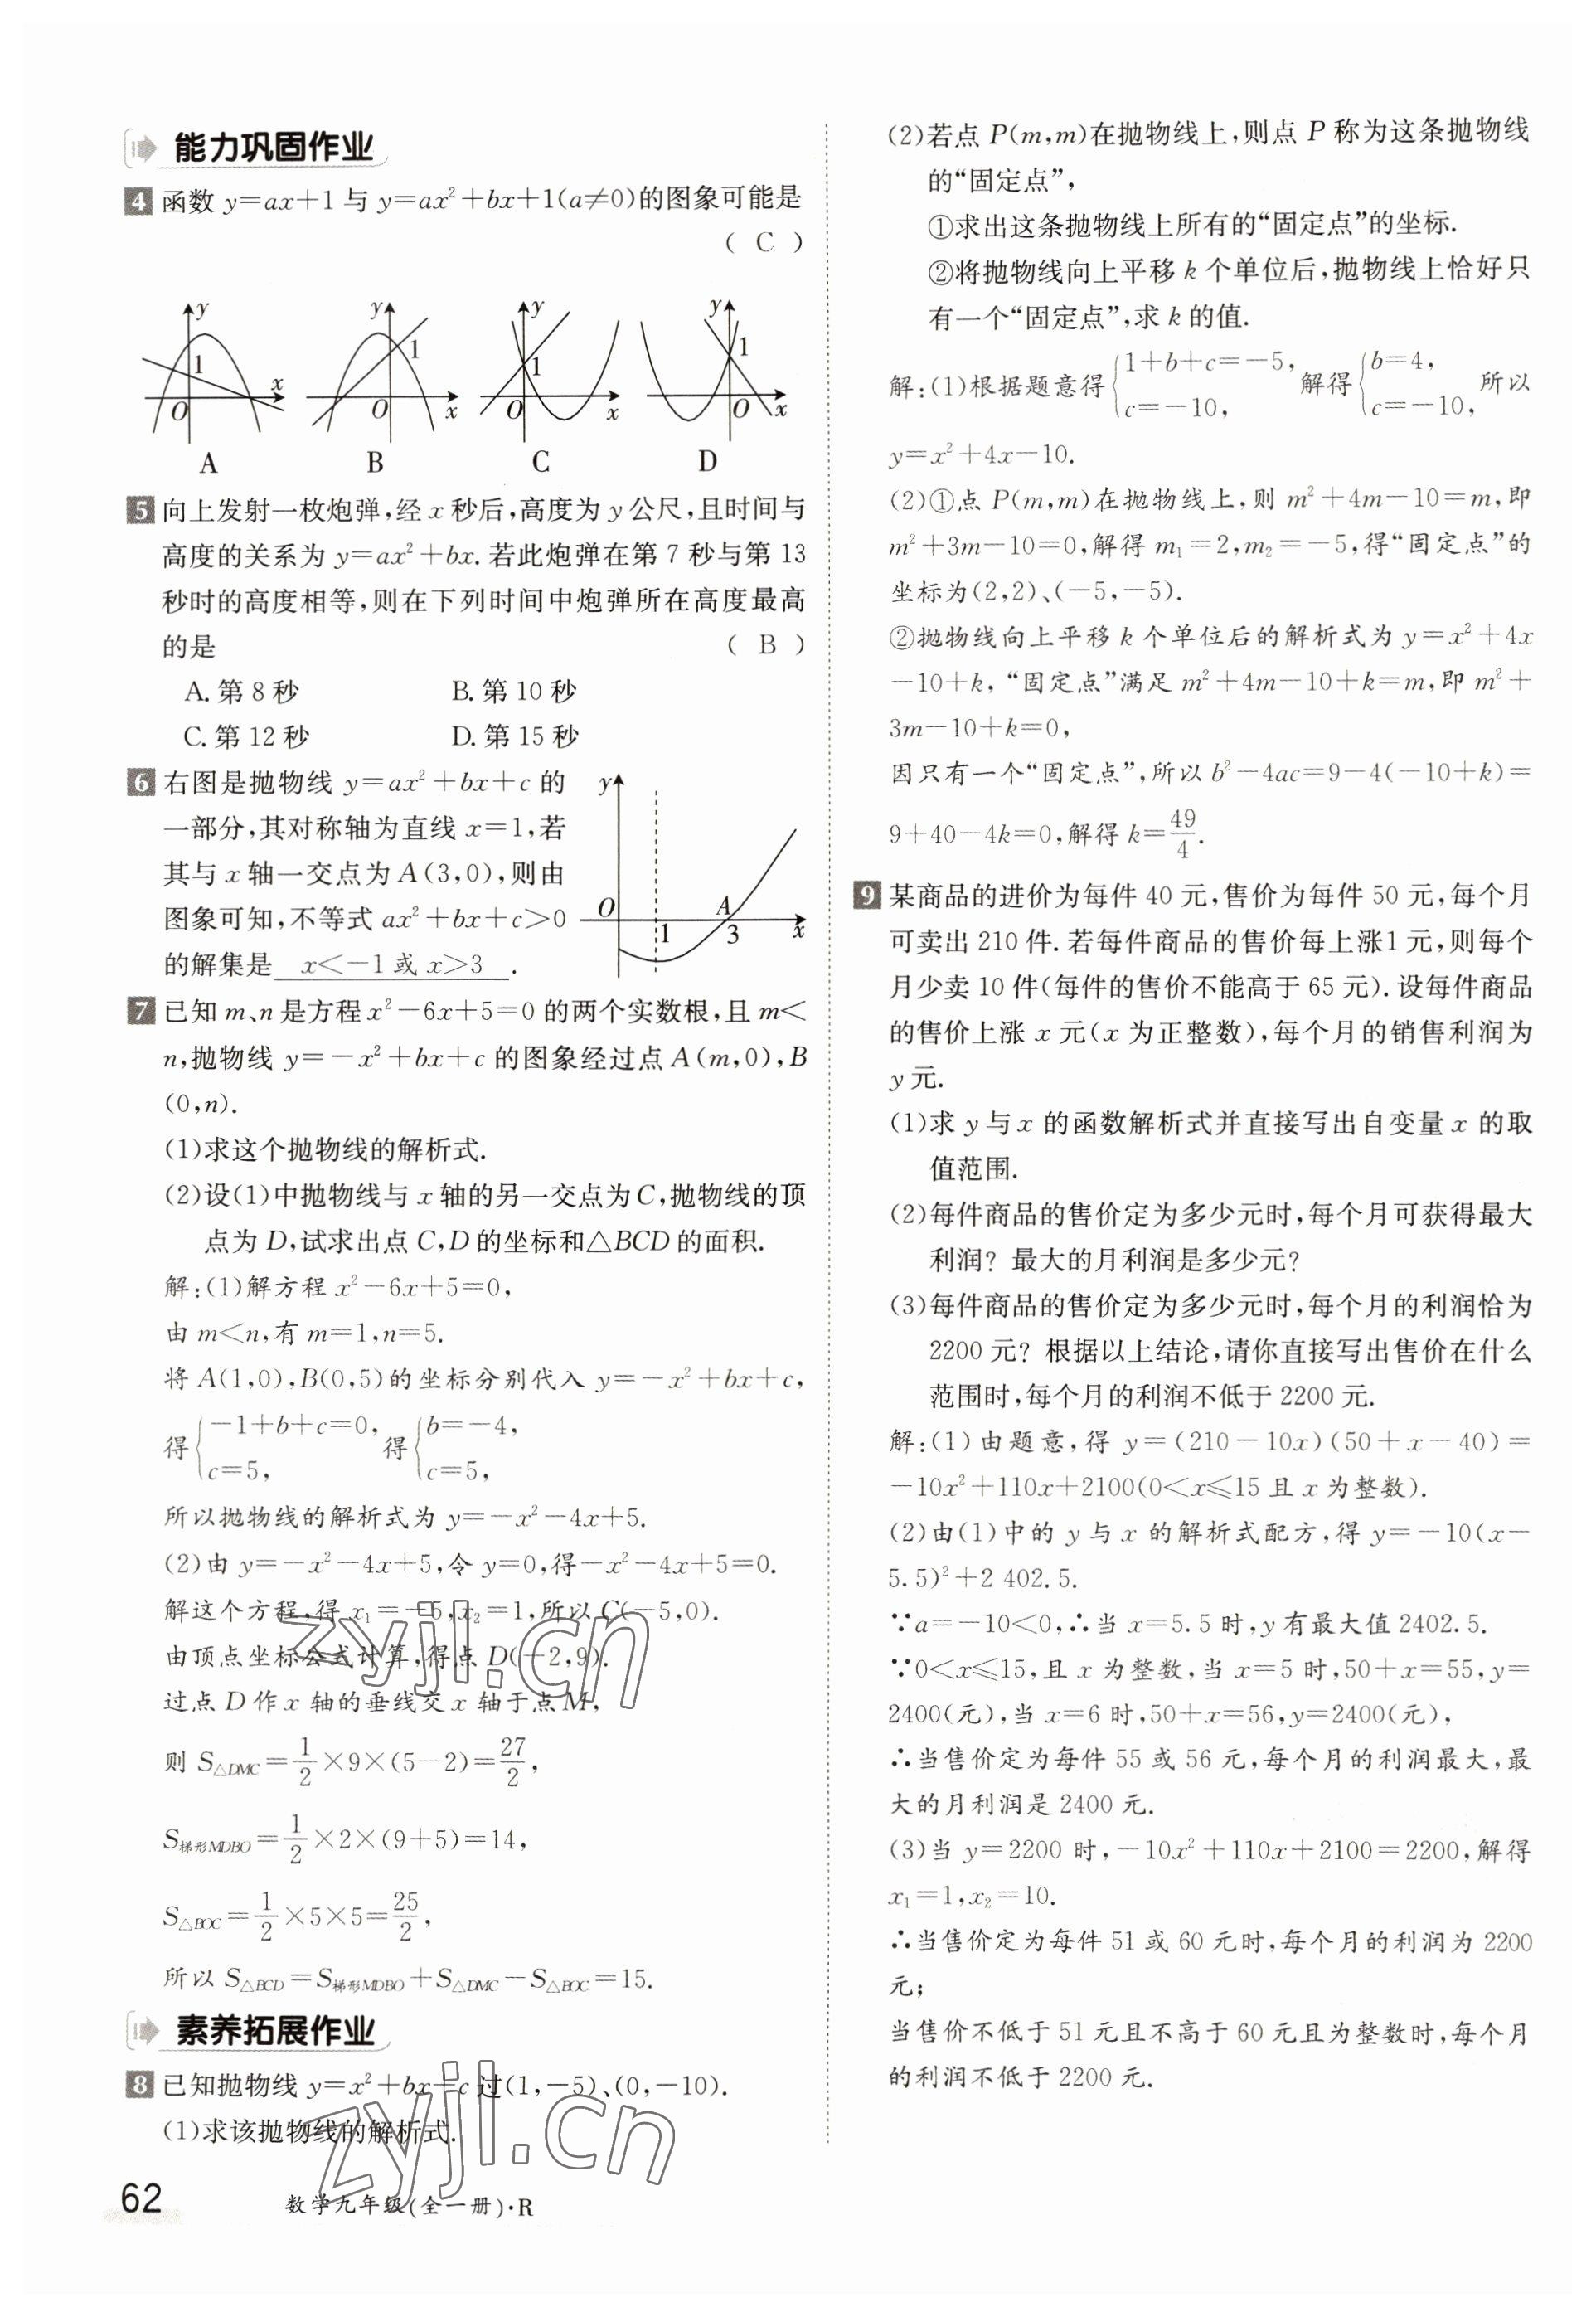 能力巩固作业
4 函数 y=ax+1 与 y=ax²+bx+1(a≠0)的图象可能是
( C )
y 1 O x
y 1 O x
y 1 O x
y 1 O x
A B C D
5 向上发射一枚炮弹,经 x 秒后,高度为 y 公尺,且时间与
高度的关系为 y=ax²+bx. 若此炮弹在第 7 秒与第 13
秒时的高度相等,则在下列时间中炮弹所在高度最高
的是 ( B )
A. 第 8 秒 B. 第 10 秒
C. 第 12 秒 D. 第 15 秒
6 右图是抛物线 y=ax²+bx+c 的
一部分,其对称轴为直线 x=1,若
其与 x 轴一交点为 A(3,0),则由
图象可知,不等式 ax²+bx+c>0
的解集是 x<-1 或 x>3 .
y O A 1 3 x
7 已知 m、n 是方程 x²-6x+5=0 的两个实数根,且 m<
n,抛物线 y=-x²+bx+c 的图象经过点 A(m,0),B
(0,n).
(1)求这个抛物线的解析式.
(2)设(1)中抛物线与 x 轴的另一交点为 C,抛物线的顶
点为 D,试求出点 C,D 的坐标和△BCD 的面积.
解:(1)解方程 x²-6x+5=0,
由 m<n,有 m=1,n=5.
将 A(1,0),B(0,5)的坐标分别代入 y=-x²+bx+c,
得{-1+b+c=0, c=5, 得{b=-4, c=5,
所以抛物线的解析式为 y=-x²-4x+5.
(2)由 y=-x²-4x+5,令 y=0,得-x²-4x+5=0.
解这个方程,得 x₁=-5,x₂=1,所以 C(-5,0).
由顶点坐标公式计算,得点 D(-2,9).
过点 D 作 x 轴的垂线交 x 轴于点 M,
则 S△DMC=1/2×9×(5-2)=27/2,
S梯形MDBO=1/2×2×(9+5)=14,
S△BOC=1/2×5×5=25/2,
所以 S△BCD=S梯形MDBO+S△DMC-S△BOC=15.
素养拓展作业
8 已知抛物线 y=x²+bx+c 过(1,-5)、(0,-10).
(1)求该抛物线的解析式.
62 数学九年级(全一册)·R
(2)若点 P(m,m)在抛物线上,则点 P 称为这条抛物线
的“固定点”,
①求出这条抛物线上所有的“固定点”的坐标.
②将抛物线向上平移 k 个单位后,抛物线上恰好只
有一个“固定点”,求 k 的值.
解:(1)根据题意得{1+b+c=-5, c=-10, 解得{b=4, c=-10, 所以
y=x²+4x-10.
(2)①点 P(m,m)在抛物线上,则 m²+4m-10=m,即
m²+3m-10=0,解得 m₁=2,m₂=-5,得“固定点”的
坐标为(2,2)、(-5,-5).
②抛物线向上平移 k 个单位后的解析式为 y=x²+4x
-10+k, “固定点”满足 m²+4m-10+k=m,即 m²+
3m-10+k=0,
因只有一个“固定点”,所以 b²-4ac=9-4(-10+k)=
9+40-4k=0,解得 k=49/4.
9 某商品的进价为每件 40 元,售价为每件 50 元,每个月
可卖出 210 件. 若每件商品的售价每上涨1 元,则每个
月少卖 10 件(每件的售价不能高于 65 元). 设每件商品
的售价上涨 x 元(x 为正整数),每个月的销售利润为
y 元.
(1)求 y 与 x 的函数解析式并直接写出自变量 x 的取
值范围.
(2)每件商品的售价定为多少元时,每个月可获得最大
利润? 最大的月利润是多少元?
(3)每件商品的售价定为多少元时,每个月的利润恰为
2200 元? 根据以上结论,请你直接写出售价在什么
范围时,每个月的利润不低于 2200 元.
解:(1) 由题意,得 y=(210-10x)(50+x-40)=
-10x²+110x+2100(0<x≤15 且 x 为整数).
(2)由(1)中的 y 与 x 的解析式配方,得 y=-10(x-
5.5)²+2 402.5.
∵a=-10<0,∴当 x=5.5 时,y 有最大值 2402.5.
∵0<x≤15,且 x 为整数,当 x=5 时,50+x=55,y=
2400(元),当 x=6 时,50+x=56,y=2400(元),
∴当售价定为每件 55 或 56 元,每个月的利润最大,最
大的月利润是 2400 元.
(3)当 y=2200 时,-10x²+110x+2100=2200,解得
x₁=1,x₂=10.
∴当售价定为每件 51 或 60 元时,每个月的利润为 2200
元;
当售价不低于 51 元且不高于 60 元且为整数时,每个月
的利润不低于 2200 元.
zyjl.cn
zyjl.cn